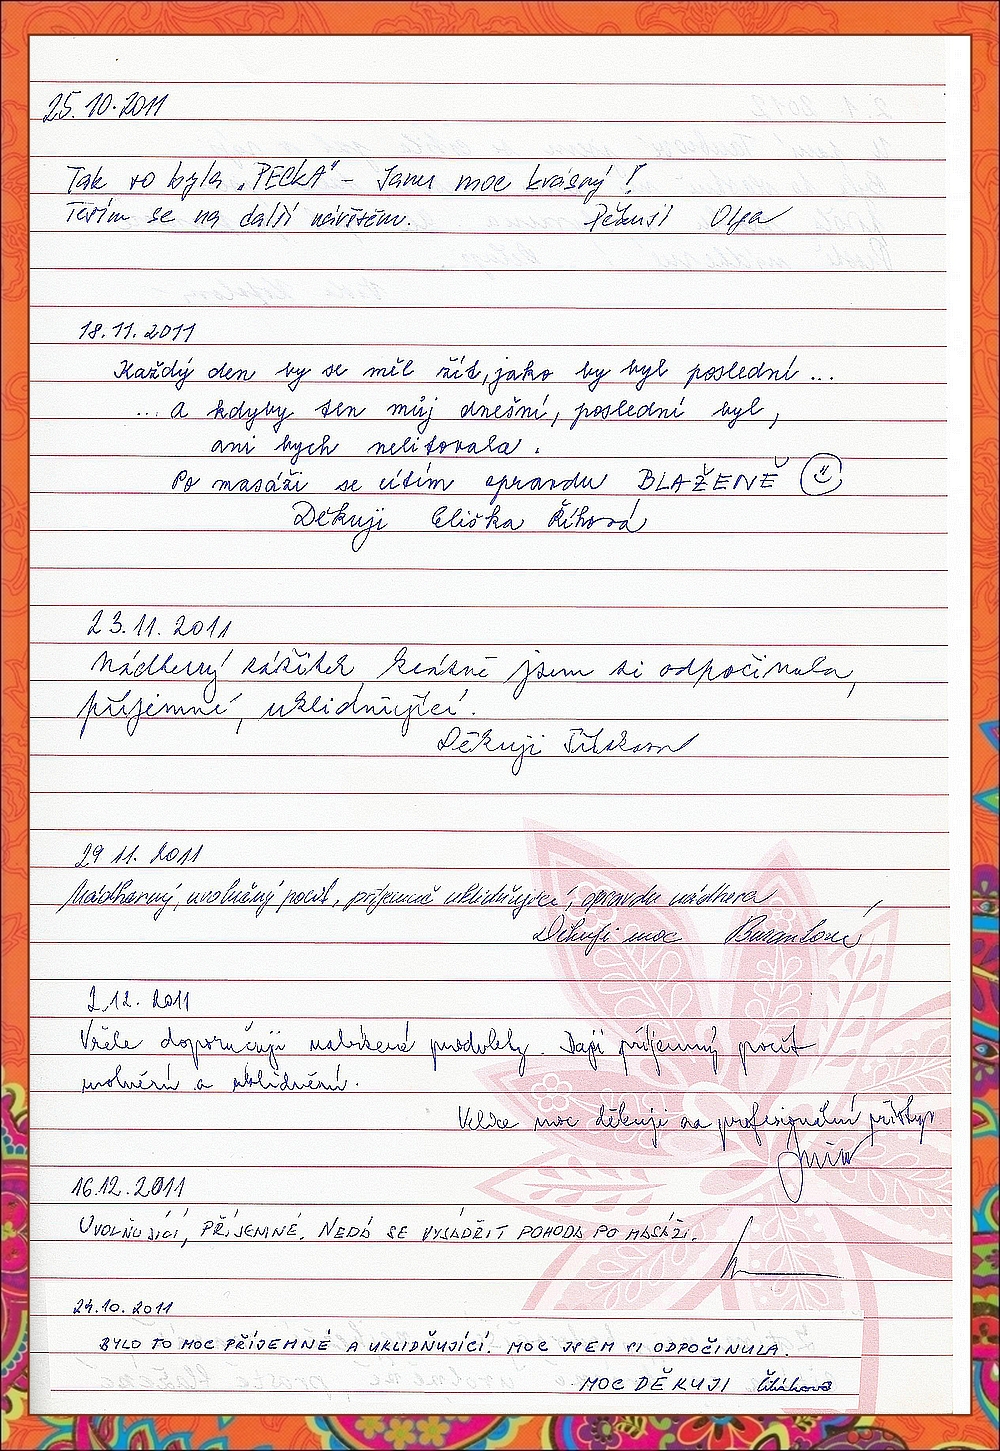 25.10.2011
Tak to byla "PECKA" - Jsem moc krásný!
Těším se na další návštěvu. Děkuji Olga
18.11.2011
Každý den by se měl žít, jako by byl poslední...
...a kdyby ten můj dnešní, poslední byl,
ani bych nelitovala.
Po masáži se cítím opravdu BLAŽENĚ
Děkuji Eliška Říhová
23.11.2011
Nádherný zážitek, krásně jsem si odpočinula,
příjemné, uklidňující.
Děkuji
29 11. 2011
Nádherný, uvolněný pocit, příjemně uklidňující, opravdu nádhera
Děkuji moc
2.12. 2011
Vřele doporučuji nabízené produkty. Dají příjemný pocit
uvolnění a uklidnění.
Velice moc děkuji za profesionální přístup
16.12.2011
UVOLŇUJÍCÍ, PŘÍJEMNÉ. NEDÁ SE VYJÁDŘIT POHODA PO MASÁŽI.
24.10.2011
BYLO TO MOC PŘÍJEMNÉ A UKLIDŇUJÍCÍ. MOC JSEM SI ODPOČINULA.
MOC DĚKUJI